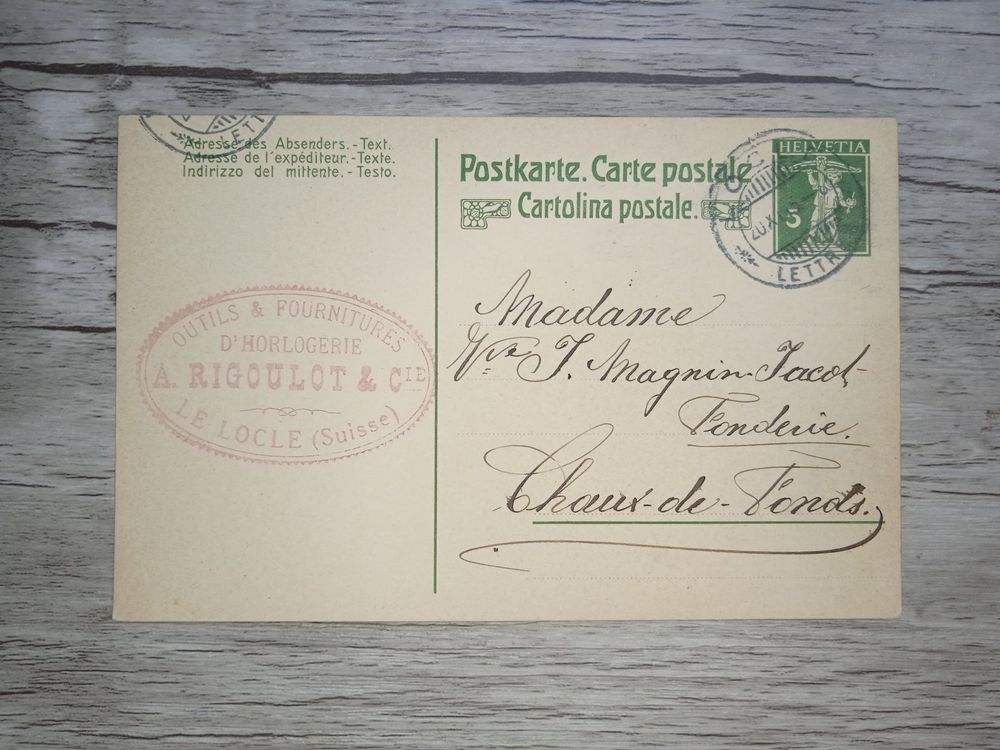 LETTR
Adresse des Absenders.-Text.
Adresse de l'expéditeur.-Texte.
Indirizzo del mittente.-Testo.
Postkarte. Carte postale
Cartolina postale.
HELVETIA
5
LETTR
OUTILS & FOURNITURES
D'HORLOGERIE
A. RIGOULOT & CIE
LE LOCLE (Suisse)
Madame
Vve J. Magnin-Jacot
Fonderie.
Chaux-de-Fonds.